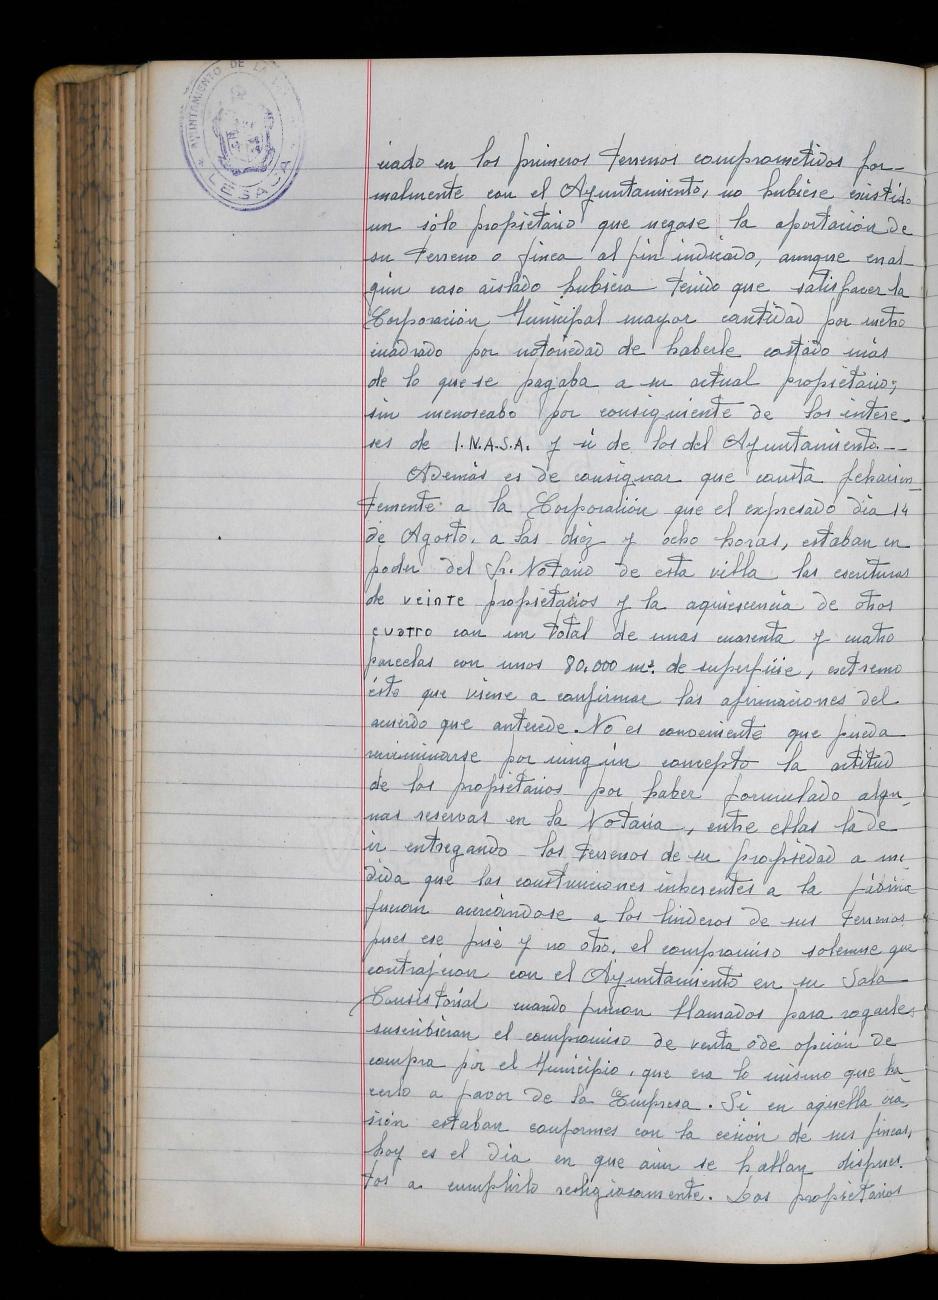 AYUNTAMIENTO DE LA
LESACA
ciado en los primeros terrenos comprometidos for-
malmente con el Ayuntamiento, no hubiese existido
un sólo propietario que negase la aportación de
su terreno o finca al fin indicado, aunque en al-
gún caso aislado hubiera tenido que satisfacer la
Corporación Municipal mayor cantidad por metro
cuadrado por notoriedad de haberle costado más
de lo que se pagaba a su actual propietario;
sin menoscabo por consiguiente de los intere-
ses de I.N.A.S.A. y si de los del Ayuntamiento.--
Además es de consignar que consta fehacien-
temente a la Corporación que el expresado día 14
de Agosto, a las diez y ocho horas, estaban en
poder del Sr. Notario de esta villa las escrituras
de veinte propietarios y la aquiescencia de otros
cuatro con un total de unas cuarenta y cuatro
parcelas con unos 80.000 m². de superficie, extremo
éste que viene a confirmar las afirmaciones del
acuerdo que antecede. No es conveniente que pueda
recriminarse por ningún concepto la actitud
de los propietarios por haber formulado algu-
nas reservas en la Notaría, entre ellas la de
ir entregando los terrenos de su propiedad a me-
dida que las construcciones inherentes a la fábrica
fueran acercándose a los linderos de sus terrenos
pues ese fué y no otro, el compromiso solemne que
contrajeron con el Ayuntamiento en su Sala
Consistorial cuando fueron llamados para rogarles
suscribieran el compromiso de venta o de opción de
compra por el Municipio, que era lo mismo que ha-
cerlo a favor de la Empresa. Si en aquella oca-
sión estaban conformes con la cesión de sus fincas,
hoy es el día en que aún se hallan dispues-
tos a cumplirlo religiosamente. Los propietarios